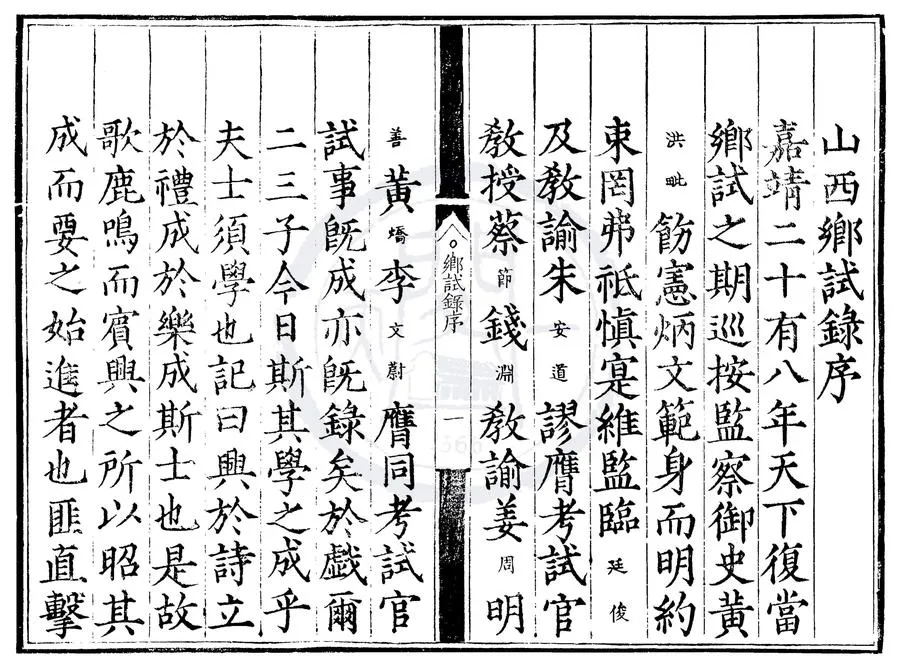 山西鄉試錄序
嘉靖二十有八年天下復當
鄉試之期巡按監察御史黃
洪毗飭憲炳文範身而明約
束罔弗祗慎寔維監臨廷俊
及教諭朱安道謬膺考試官
教授蔡節錢淵教諭姜周明
鄉試錄序
一
善黃燆李文蔚膺同考試官
試事旣成亦旣錄矣於戲爾
二三子今日斯其學之成乎
夫士須學也記曰興於詩立
於禮成於樂成斯士也是故
歌鹿鳴而賓興之所以昭其
成而要之始進者也匪直擊